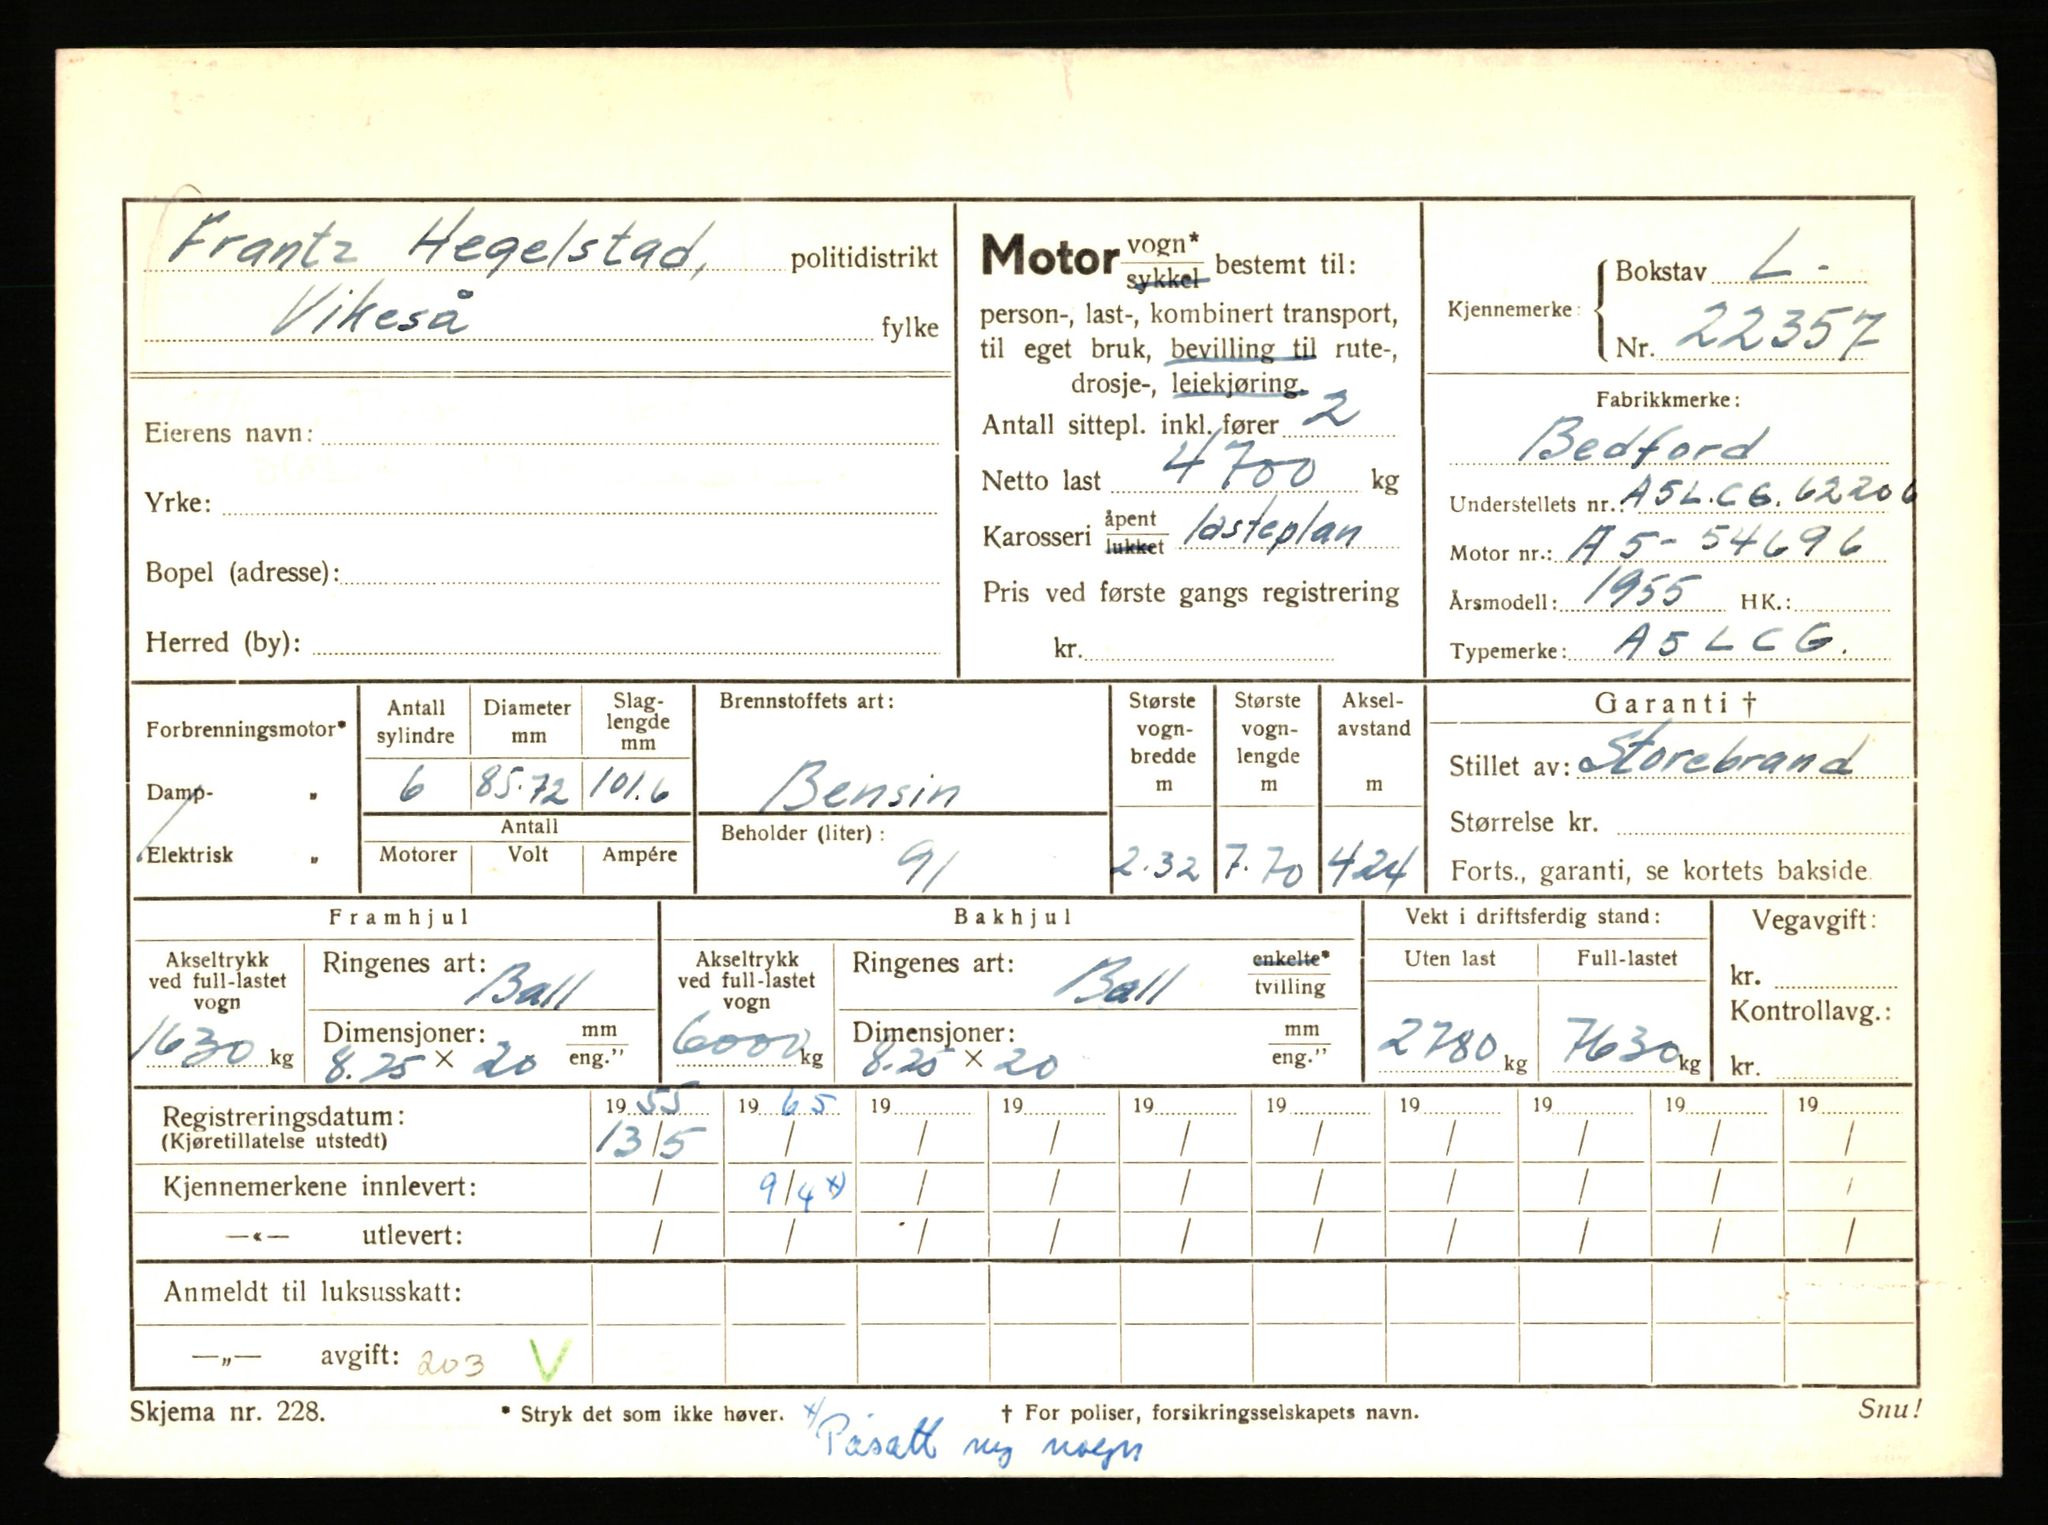 Frantz Hegelstad, politidistrikt
Vikeså fylke
Eierens navn:
Yrke:
Bopel (adresse):
Herred (by):
Motor vogn* / sykkel bestemt til:
person-, last-, kombinert transport,
til eget bruk, bevilling til rute-,
drosje-, leiekjøring.
Antall sittepl. inkl. fører 2
Netto last 4700 kg
Karosseri åpent / lukket lasteplan
Pris ved første gangs registrering
kr.
Kjennemerke: Bokstav L-
Nr. 22357
Fabrikkmerke:
Bedford
Understellets nr.: A5L.CG. 62206
Motor nr.: A5-54696
Årsmodell: 1955 HK.:
Typemerke: A5LCG.
Forbrenningsmotor*
Damp- „
Elektrisk „
Antall sylindre 6
Diameter mm 85.72
Slag-lengde mm 101.6
Antall
Motorer Volt Ampére
Brennstoffets art:
Bensin
Beholder (liter):
91
Største vogn-bredde m 2.32
Største vogn-lengde m 7.70
Aksel-avstand m 424
Garanti †
Stillet av: Storebrand
Størrelse kr.
Forts., garanti, se kortets bakside.
Framhjul
Akseltrykk ved full-lastet vogn
1630 kg
Ringenes art: Ball
Dimensjoner: mm / eng."
8.25 × 20
Bakhjul
Akseltrykk ved full-lastet vogn
6000 kg
Ringenes art: Ball enkelte* / tvilling
Dimensjoner: mm / eng."
8.25 × 20
Vekt i driftsferdig stand:
Uten last Full-lastet
2780 kg 7630 kg
Vegavgift:
kr.
Kontrollavg.:
kr.
Registreringsdatum: 1955 1965 19 19 19 19 19 19 19 19
(Kjøretillatelse utstedt) 13/5 / / / / / / / / /
Kjennemerkene innlevert: / 9/4 x) / / / / / / / /
—«— utlevert: / / / / / / / / / /
Anmeldt til luksusskatt:
—„— avgift: 203 V
Skjema nr. 228. * Stryk det som ikke høver. † For poliser, forsikringsselskapets navn. Snu!
x) Påsatt ny vogn